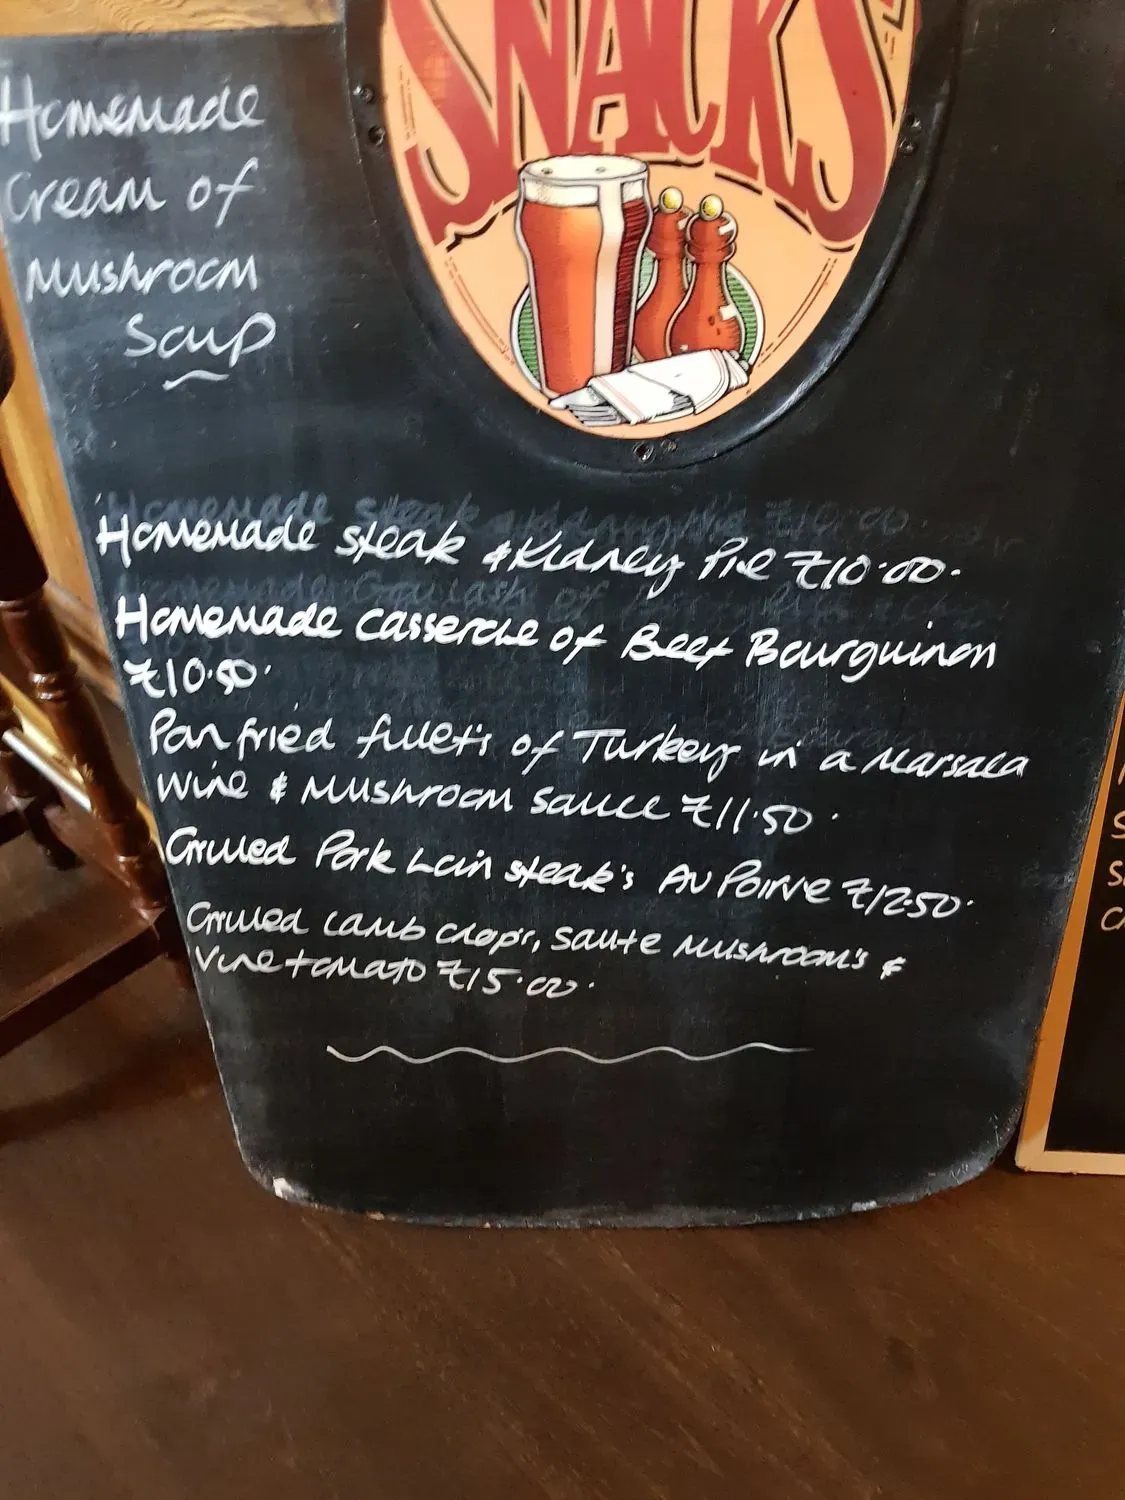 SNACKS
Homemade
Cream of
Mushroom
Soup
Homemade steak & Kidney Pie £10.00.
Homemade casserole of Beef Bourguinon
£10.50.
Pan fried fillet's of Turkey in a Marsala
Wine & Mushroom sauce £11.50.
Grilled Pork Loin steak's AU Poirve £12.50.
Grilled Lamb chop's, saute mushroom's &
Vine tomato £15.00.